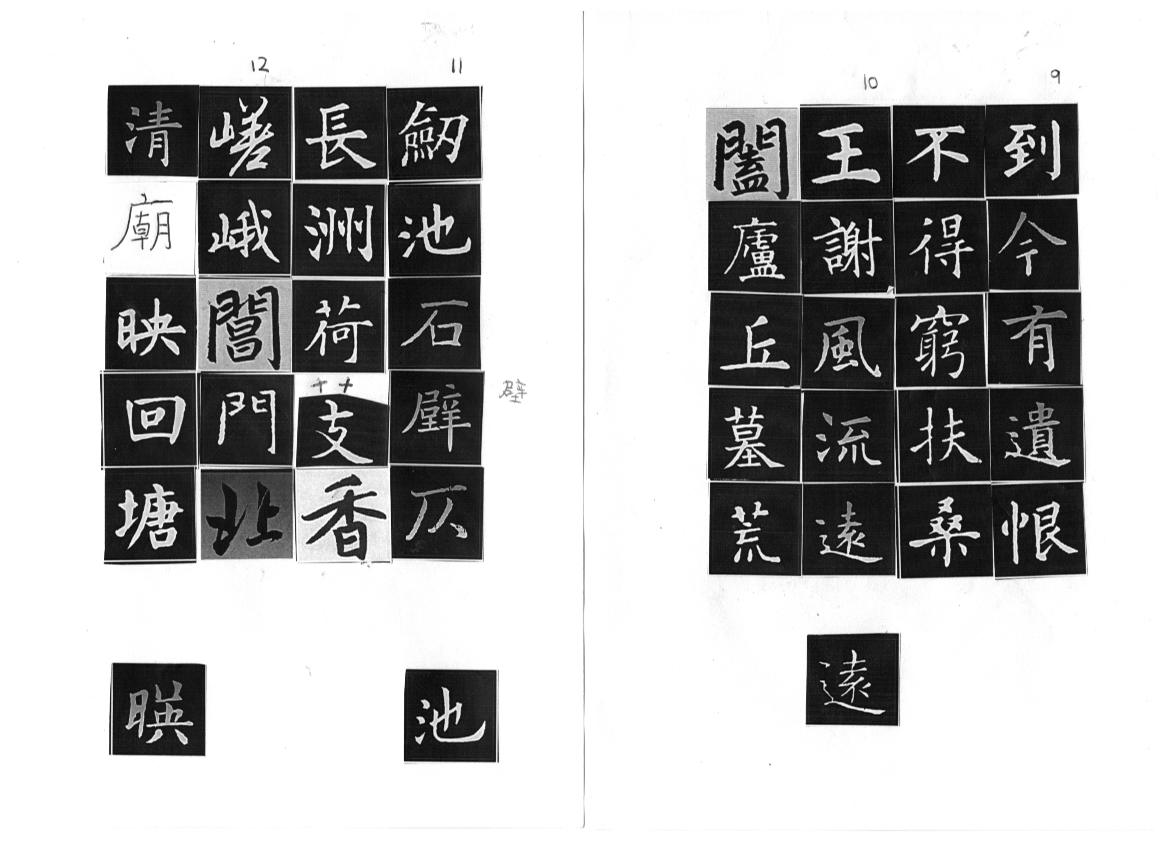 9
到今有遺恨
不得窮扶桑
10
王謝風流遠
闔廬丘墓荒
遠
11
劒池石辟仄
壁
長洲荷芰香
池
12
嵯峨閶門北
清廟映回塘
暎